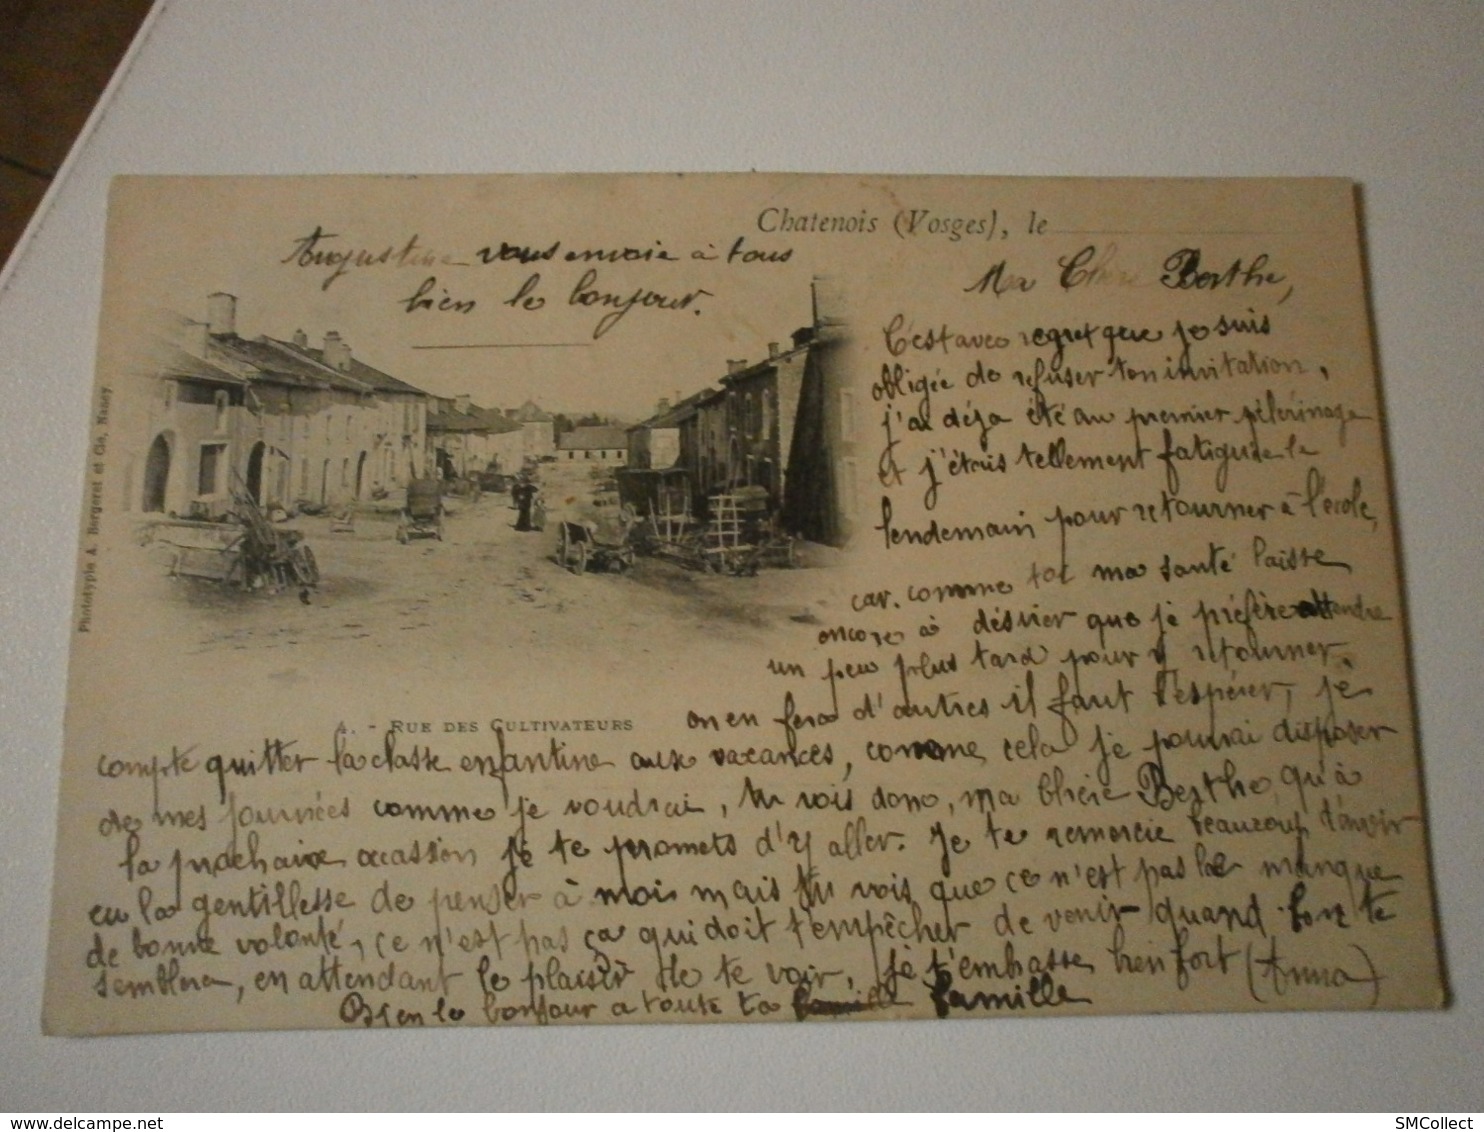 Chatenois (Vosges), le
Augustine vous envoie à tous
bien le bonjour.
Ma Chère Berthe,
C'est avec regret que je suis
obligée de refuser ton invitation,
j'ai déja été au premier pélerinage
et j'étais tellement fatiguée le
lendemain pour retourner à l'école,
car. comme ma santé laisse
encore à désirer que je préfère attendre
un peu plus tard pour y retourner
on en fera d'autres il faut l'espérer, je
compte quitter la classe enfantine aux vacances, comme cela je pourrai disposer
de mes journées comme je voudrai, tu vois donc, ma chère Berthe, qu'à
la prochaine occasion je te promets d'y aller. Je te remercie beaucoup d'avoir
eu la gentillesse de penser à moi mais tu vois que ce n'est pas le manque
de bonne volonté, ce n'est pas ça qui doit t'empêcher de venir quand bon te
semblera, en attendant le plaisir de te voir, je t'embrasse bien fort (Anna)
Bien le bonjour a toute ta famille
4. - RUE DES CULTIVATEURS
Phototypie A. Bergeret et Cie, Nancy
www.delcampe.net
SMCollect